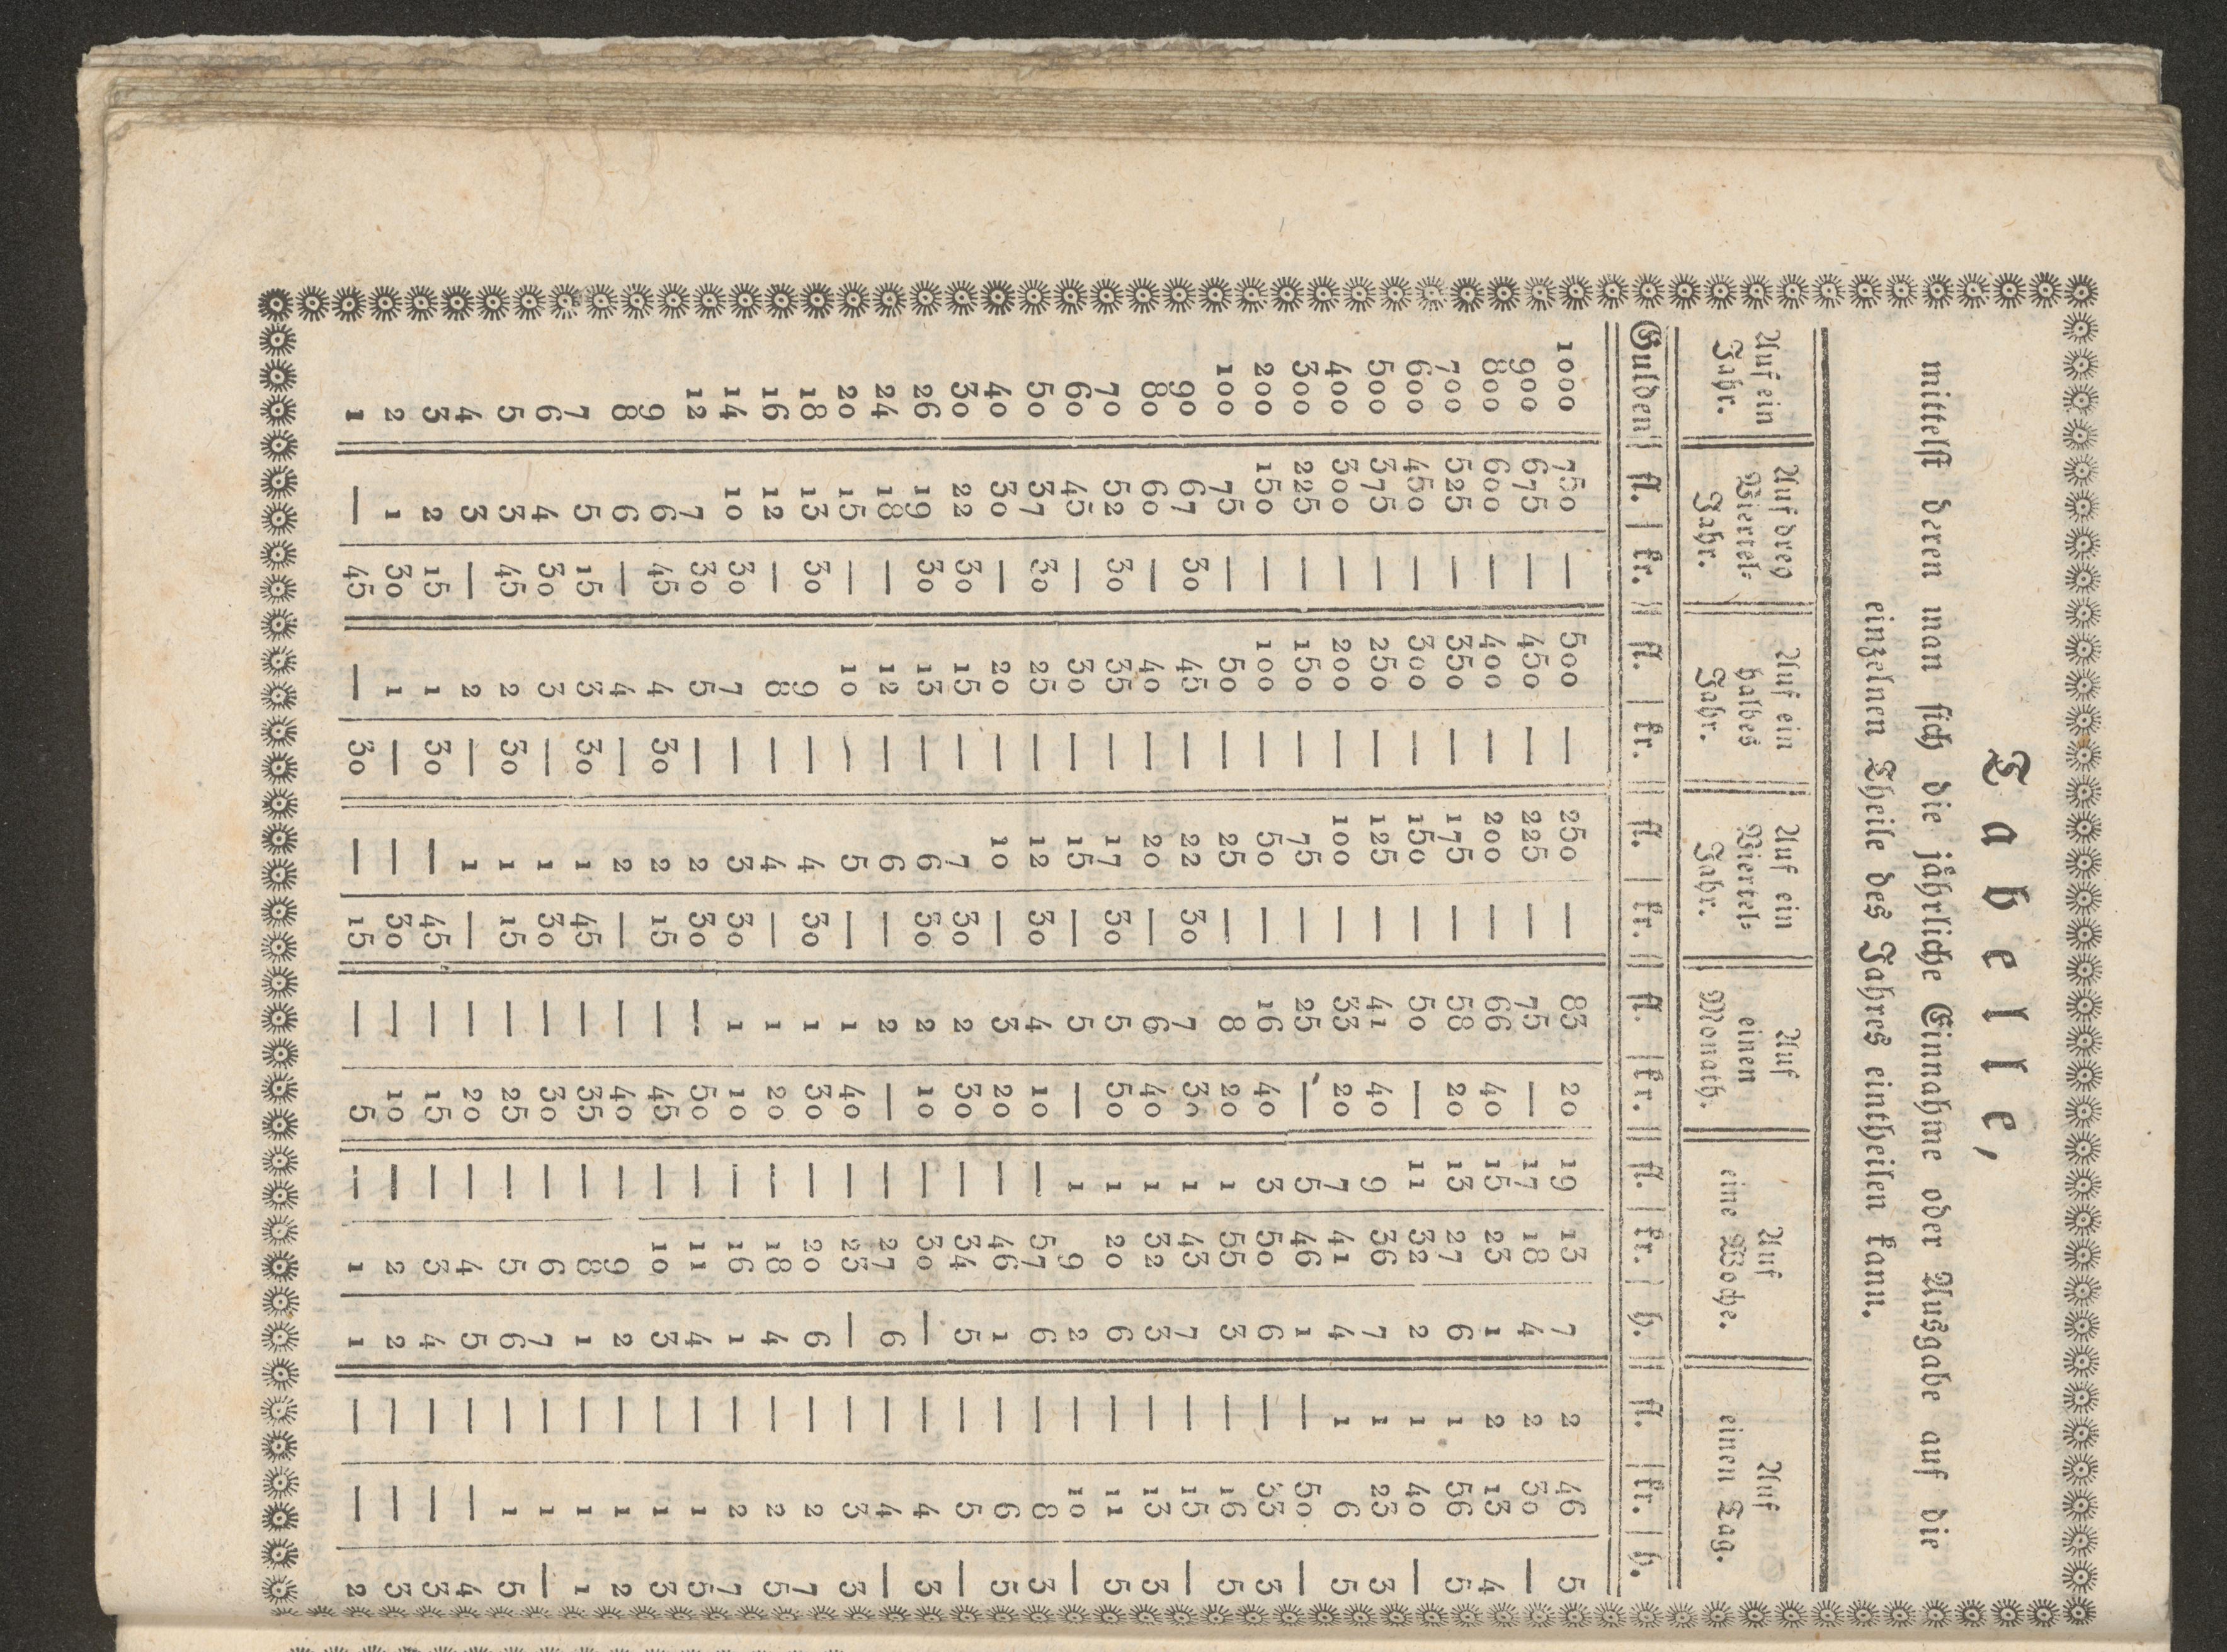 Tabelle,
mittelst deren man sich die jährliche Einnahme oder Ausgabe auf die
einzelnen Theile des Jahres eintheilen kann.
Auf ein Jahr. | Auf drey Viertel-Jahr. | Auf ein halbes Jahr. | Auf ein Viertel-Jahr. | Auf einen Monath. | Auf eine Woche. | Auf einen Tag.
Gulden | fl. | kr. | fl. | kr. | fl. | kr. | fl. | kr. | fl. | kr. | h. | fl. | kr. | h.
1000 750 — 500 — 250 — 83 20 19 13 7 2 46 5
900 675 — 450 — 225 — 75 — 17 18 4 2 30 —
800 600 — 400 — 200 — 66 40 15 23 1 2 13 4
700 525 — 350 — 175 — 58 20 13 27 6 1 56 5
600 450 — 300 — 150 — 50 — 11 32 2 1 40 —
500 375 — 250 — 125 — 41 40 9 36 7 1 23 3
400 300 — 200 — 100 — 33 20 7 41 4 1 6 5
300 225 — 150 — 75 — 25 — 5 46 1 — 50 —
200 150 — 100 — 50 — 16 40 3 50 6 — 33 3
100 75 — 50 — 25 — 8 20 1 55 3 — 16 5
90 67 30 45 — 22 30 7 30 1 43 7 — 15 —
80 60 — 40 — 20 — 6 40 1 32 3 — 13 3
70 52 30 35 — 17 30 5 50 1 20 6 — 11 5
60 45 — 30 — 15 — 5 — 1 9 2 — 10 —
50 37 30 25 — 12 30 4 10 — 57 6 — 8 3
40 30 — 20 — 10 — 3 20 — 46 1 — 6 5
30 22 30 15 — 7 30 2 30 — 34 5 — 5 —
26 19 30 13 — 6 30 2 10 — 30 — — 4 3
24 18 — 12 — 6 — 2 — — 27 6 — 4 —
20 15 — 10 — 5 — 1 40 — 23 — — 3 3
18 13 30 9 — 4 30 1 30 — 20 6 — 2 7
16 12 — 8 — 4 — 1 20 — 18 4 — 2 5
14 10 30 7 — 3 30 1 10 — 16 1 — 2 7
12 7 30 5 — 2 30 — 50 — 11 4 — 1 5
9 6 45 4 30 2 15 — 45 — 10 3 — 1 3
8 6 — 4 — 2 — — 40 — 9 2 — 1 2
7 5 15 3 30 1 45 — 35 — 8 1 — 1 1
6 4 30 3 — 1 30 — 30 — 6 7 — 1 —
5 3 45 2 30 1 15 — 25 — 5 6 — 1 5
4 3 — 2 — 1 — — 20 — 4 5 — — 4
3 2 15 1 30 — 45 — 15 — 3 4 — — 3
2 1 30 1 — — 30 — 10 — 2 2 — — 3
1 — 45 — 30 — 15 — 5 — 1 1 — — 2